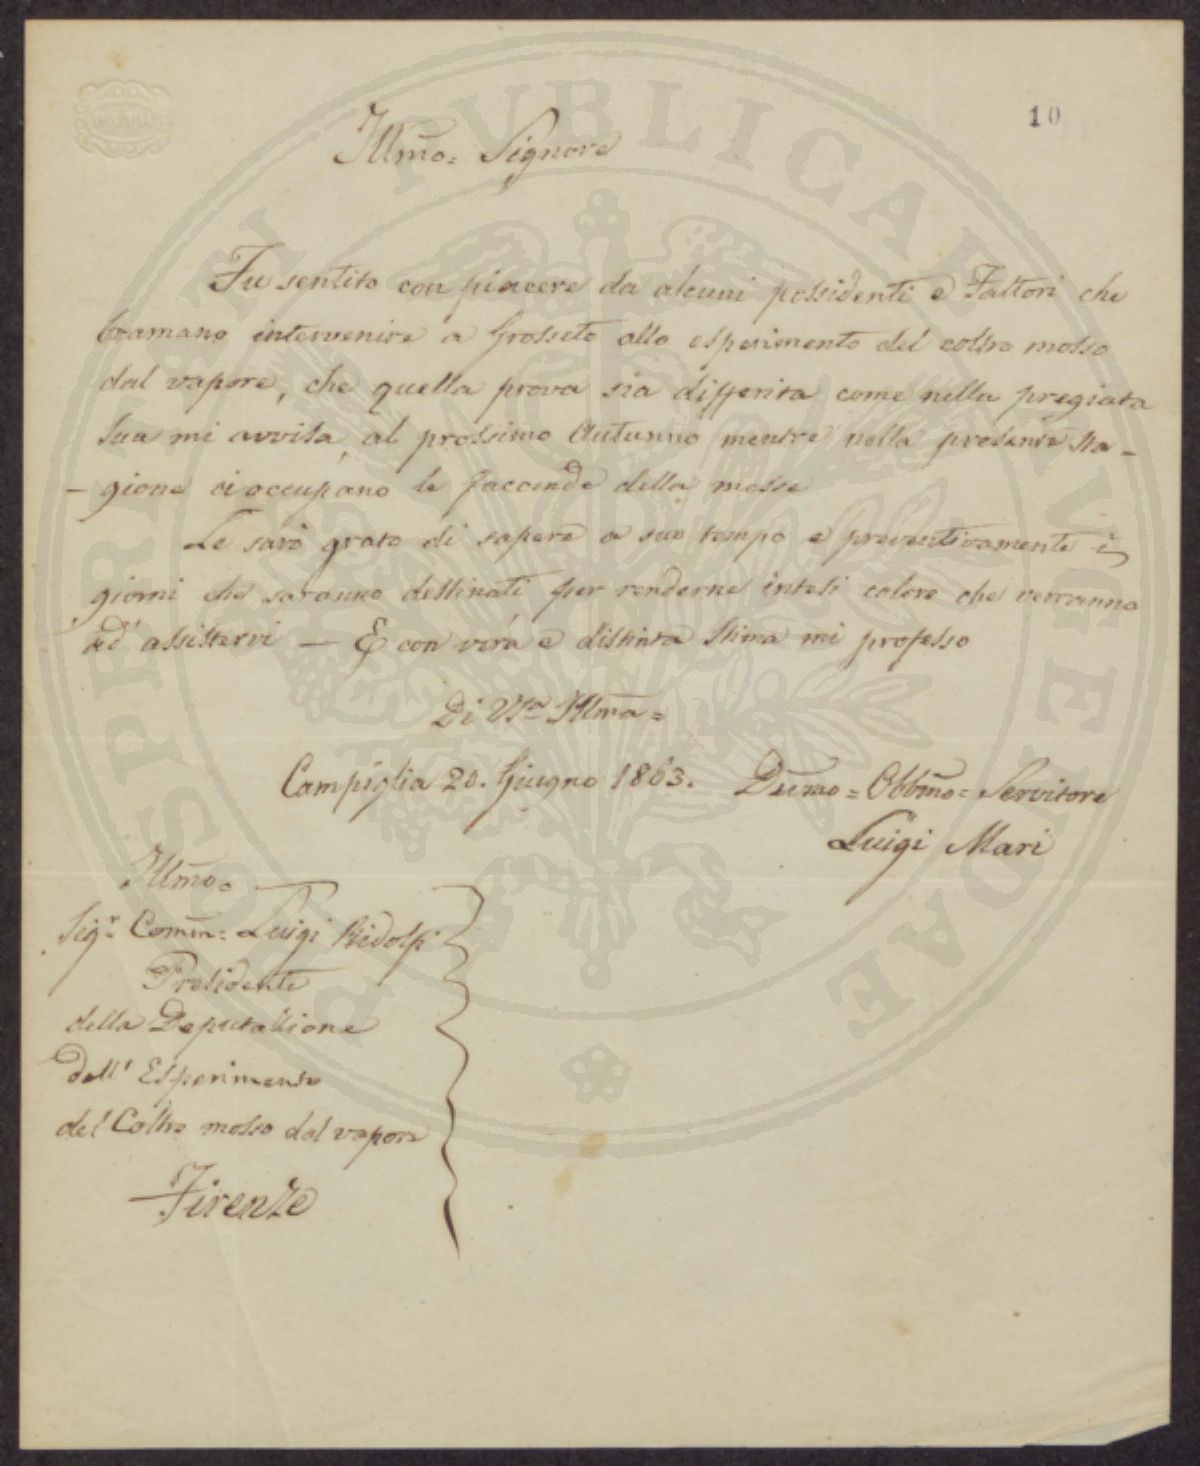 10
Illmo= Signore
Fu sentito con piacere da alcuni possidenti e Fattori che
bramano intervenire a Grosseto allo esperimento del coltro mosso
dal vapore, che quella prova sia differita come nella pregiata
Sua mi avvisa, al prossimo Autunno mentre nella presente sta=
= gione ci occupano le faccende della messe
Le sarò grato di sapere a suo tempo e preventivamente i
giorni che saranno destinati per renderne intesi coloro che verranno
ad' assistervi — E con vera e distinta stima mi professo
Di VSa Illma=
Campiglia 20. Giugno 1863. Dummo= Obbmo= Servitore
Luigi Mari
Illmo=
Sigr. Comm: Luigi Ridolfi
Presidente
della Deputazione
dell' Esperimento
del Coltro mosso dal vapore
Firenze
PROSPERITATI PUBLICAE AUGENDAE